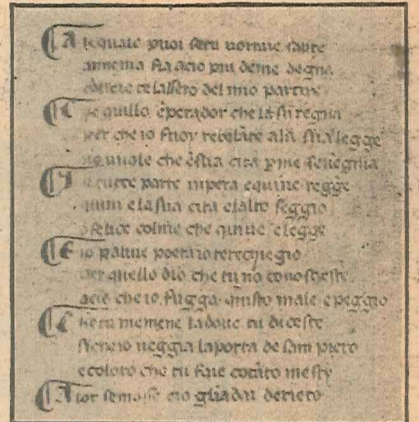 A lequale puoi setu uorrue
anima fia acio piu deme degna
telassero del mio partire
Che quillo eperador che la su regna
per che io fuoy rebelante ala sua legge
no uuole che esta cita p me seuegnia
In tutte parte inpera equiue regge
quiui elasua cita elalto seggio
o felice colui che quiue elegge
Et io poeta io terechiegio
per quello dio che tu no conosceste
acio che io fugga questo male epeggio
Che tu memene ladoue tu diceste
si che io ueggia laporta de sam piero
ecoloro che tu faie cotato mesty
Alor semosse eio gliadai derieto